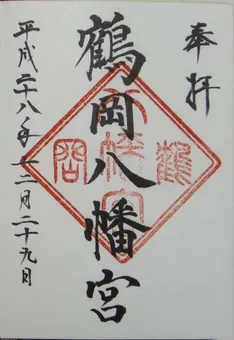 奉拝
鶴岡八幡宮
平成二十八年十二月二十九日